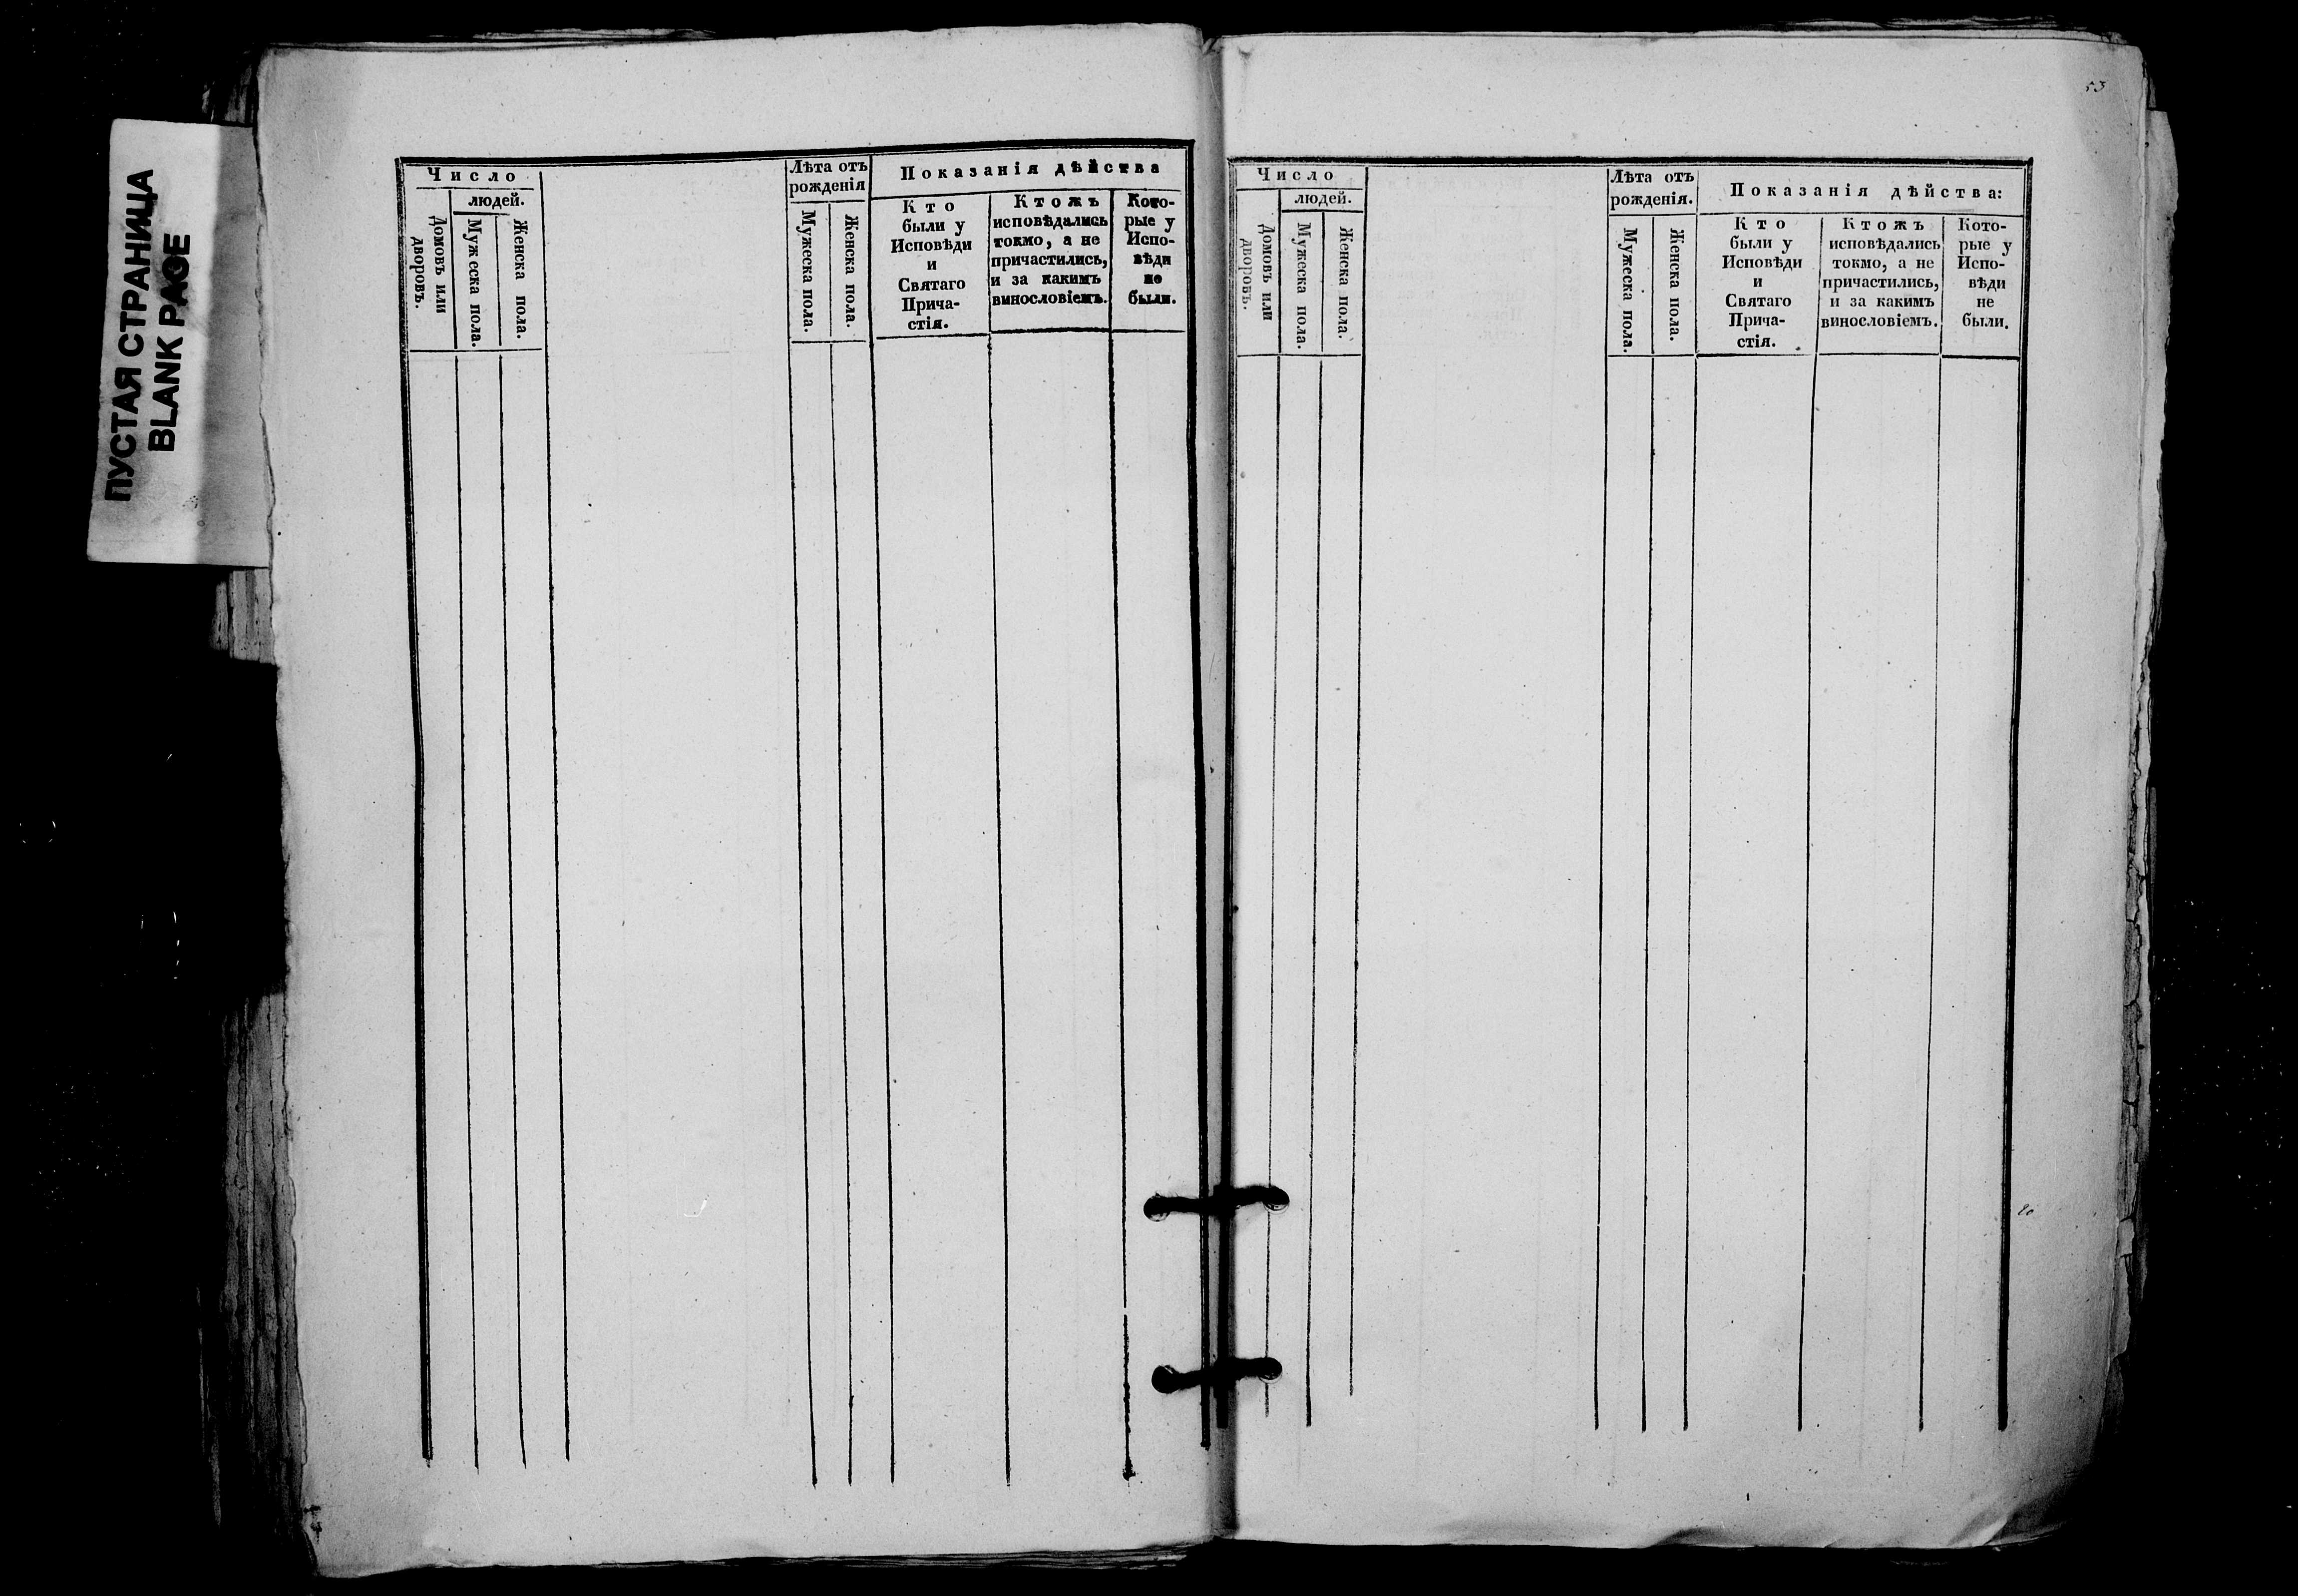 ПУСТАЯ СТРАНИЦА
BLANK PAGE
Число
людей.
Домовъ или
дворовъ.
Мужеска пола.
Женска пола.
Лѣта отъ
рожденія
Мужеска пола.
Женска пола.
Показанія дѣйства
Кто
были у
Исповѣди
и
Святаго
Прича-
стія.
Ктожъ
исповѣдались
токмо, а не
причастились,
и за какимъ
винословіемъ.
Кото-
рые у
Испо-
вѣди
не
были.
53
Число
людей.
Домовъ или
дворовъ.
Мужеска пола.
Женска пола.
Лѣта отъ
рожденія.
Мужеска пола.
Женска пола.
Показанія дѣйства:
Кто
были у
Исповѣди
и
Святаго
Прича-
стія.
Ктожъ
исповѣдались
токмо, а не
причастились,
и за какимъ
винословіемъ.
Кото-
рые у
Испо-
вѣди
не
были.